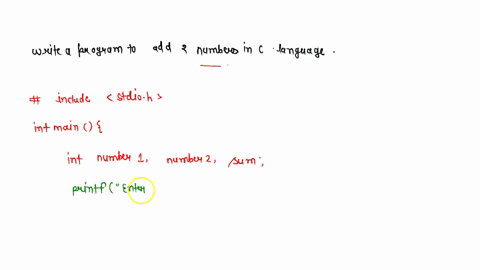 write a program to add 2 numbers in c language.
# include <stdio.h>
int main () {
int number 1, number 2, sum;
printf ("Enter